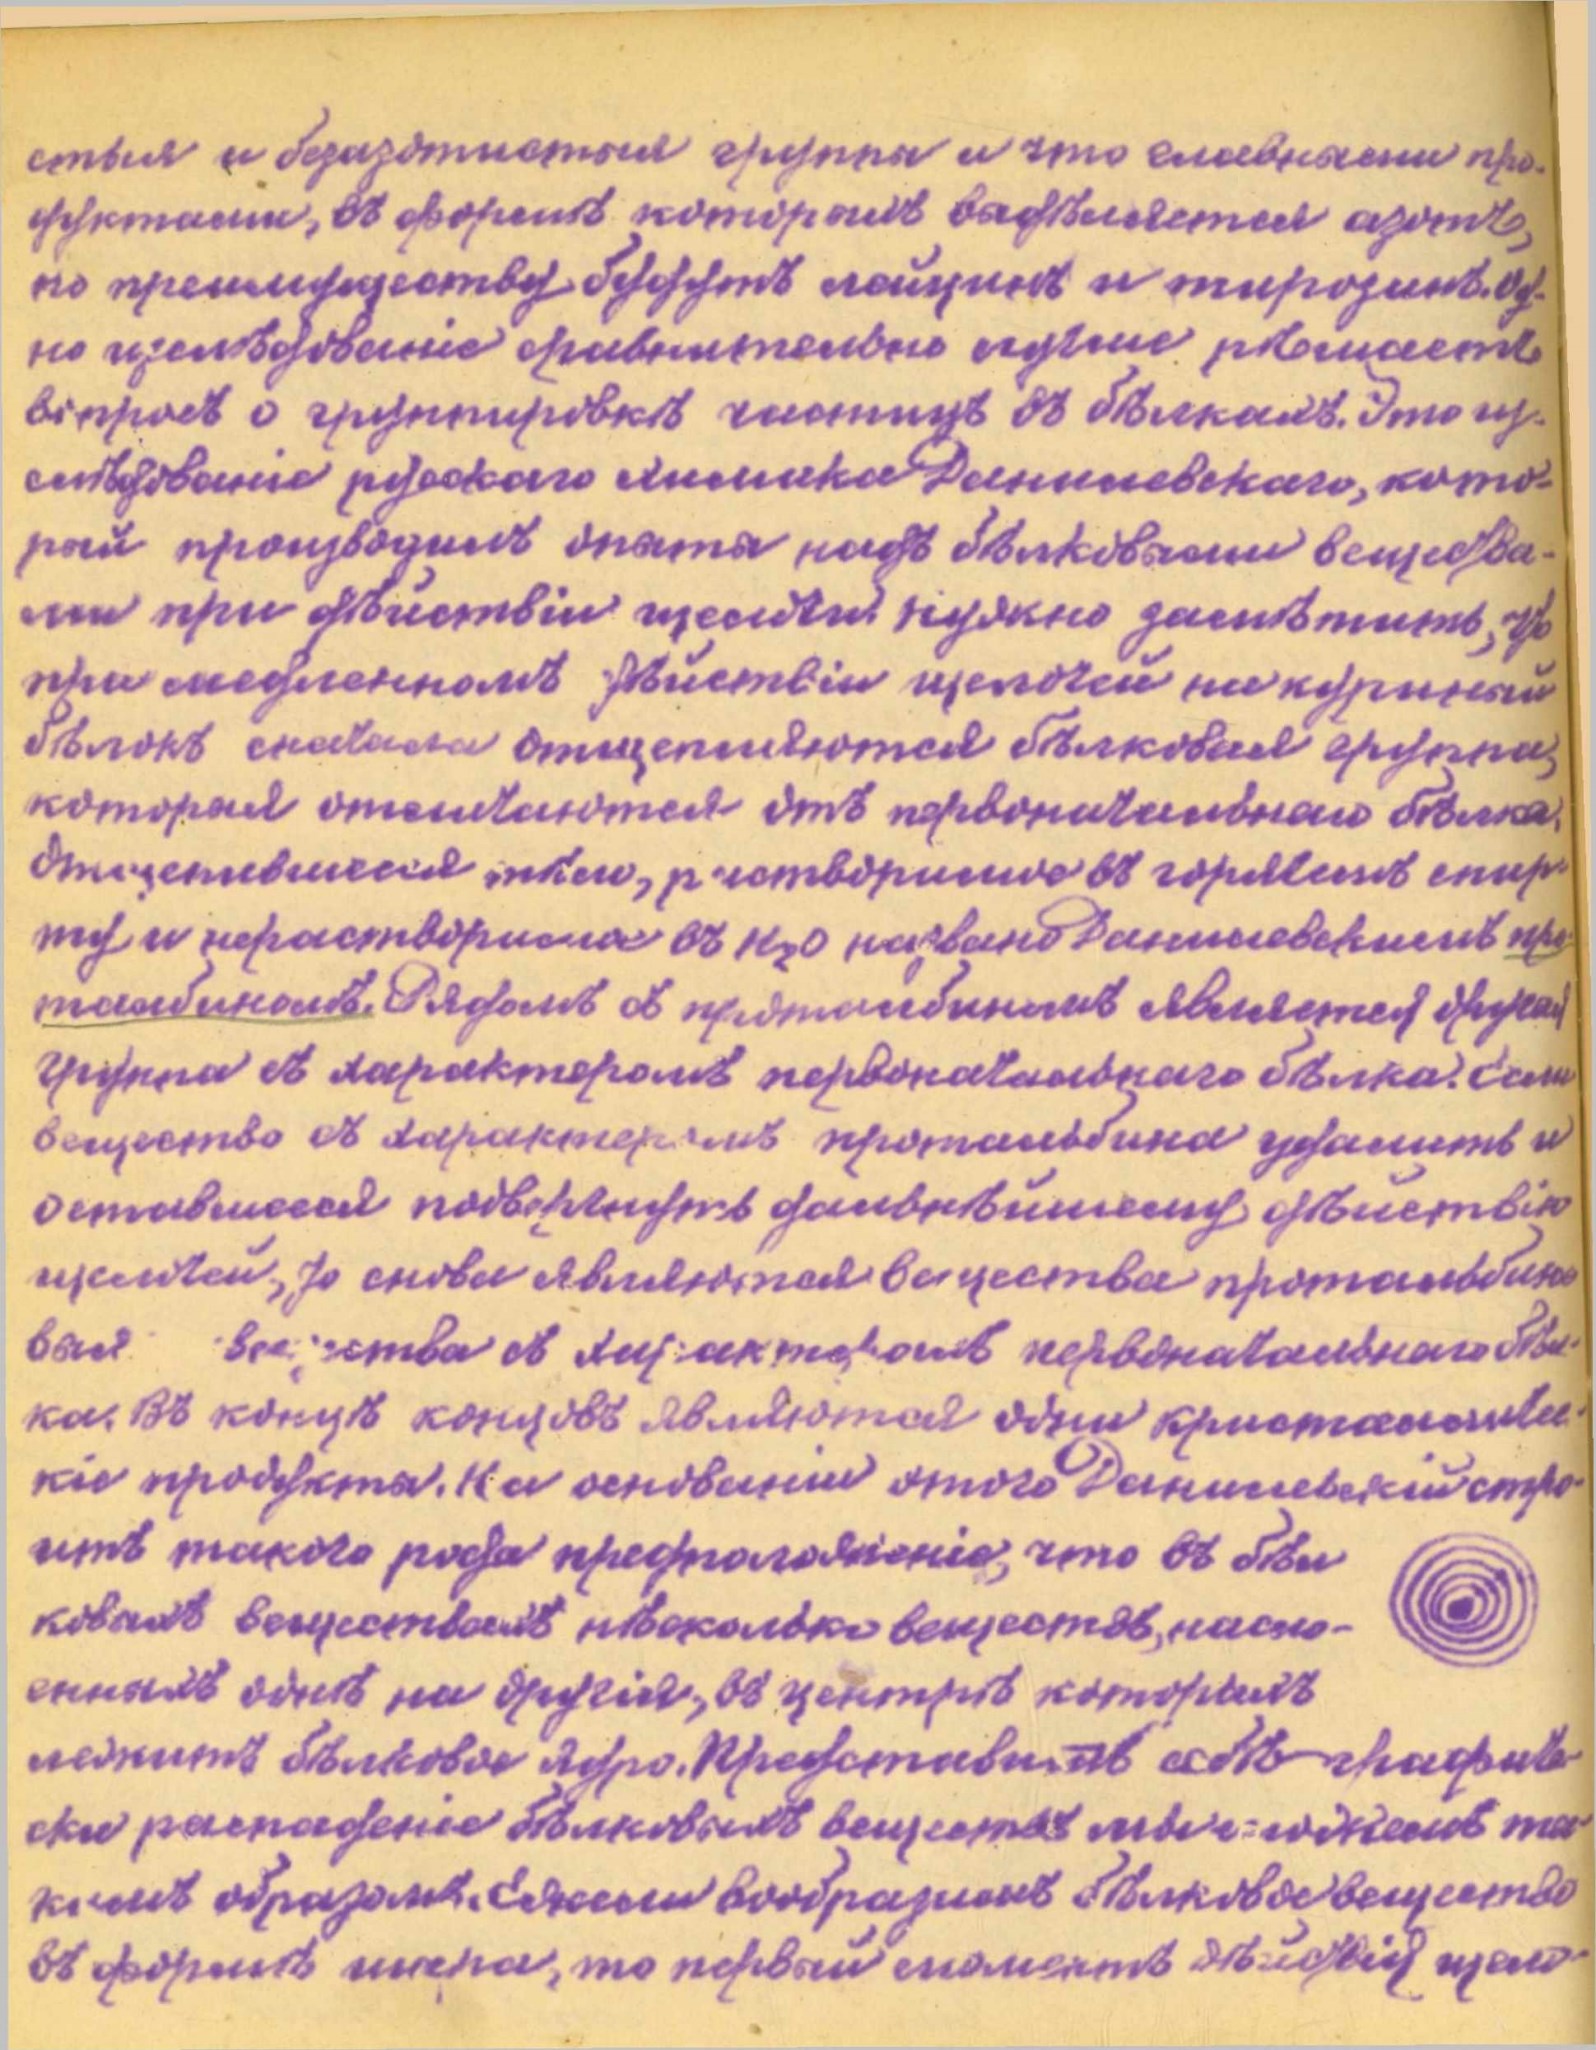 стыя и безазотистыя группы и что главными про-
дуктами, въ формѣ которыхъ выдѣляется азотъ,
по преимуществу будутъ лейцинъ и тирозинъ. Од-
но изслѣдованіе сравнительно лучше рѣшаетъ
вопросъ о группировкѣ частицъ въ бѣлкахъ. Это из-
слѣдованіе русскаго химика Данилевскаго, кото-
рый производилъ опыты надъ бѣлковыми вещества-
ми при дѣйствіи щелочей. Нужно замѣтить, что
при медленномъ дѣйствіи щелочей на куриный
бѣлокъ сначала отщепляются бѣлковыя группы,
которыя отличаются отъ первоначальнаго бѣлка.
Отщепившееся тѣло, растворимое въ горячемъ спир-
ту и нерастворимое въ H2O названо Данилевскимъ про-
тальбиномъ. Рядомъ съ протальбиномъ является другая
группа съ характеромъ первоначальнаго бѣлка. Если
вещество съ характеромъ протальбина удалить и
оставшееся подвергнуть дальнѣйшему дѣйствію
щелочей, то снова являются вещества протальбино
выя вещества съ характеромъ первоначальнаго бѣл-
ка. Въ концѣ концовъ являются одни кристалличес-
кіе продукты. На основаніи этого Данилевскій стро-
итъ такого рода предположеніе, что въ бѣл
ковыхъ веществахъ нѣсколько веществъ, насло-
енныхъ однѣ на другія, въ центрѣ которыхъ
лежитъ бѣлковое ядро. Представить себѣ графиче-
ски распаденіе бѣлковыхъ веществъ мы можемъ та-
кимъ образомъ. Ежели вообразимъ бѣлковое вещество
въ формѣ шара, то первый моментъ дѣйствія щело-